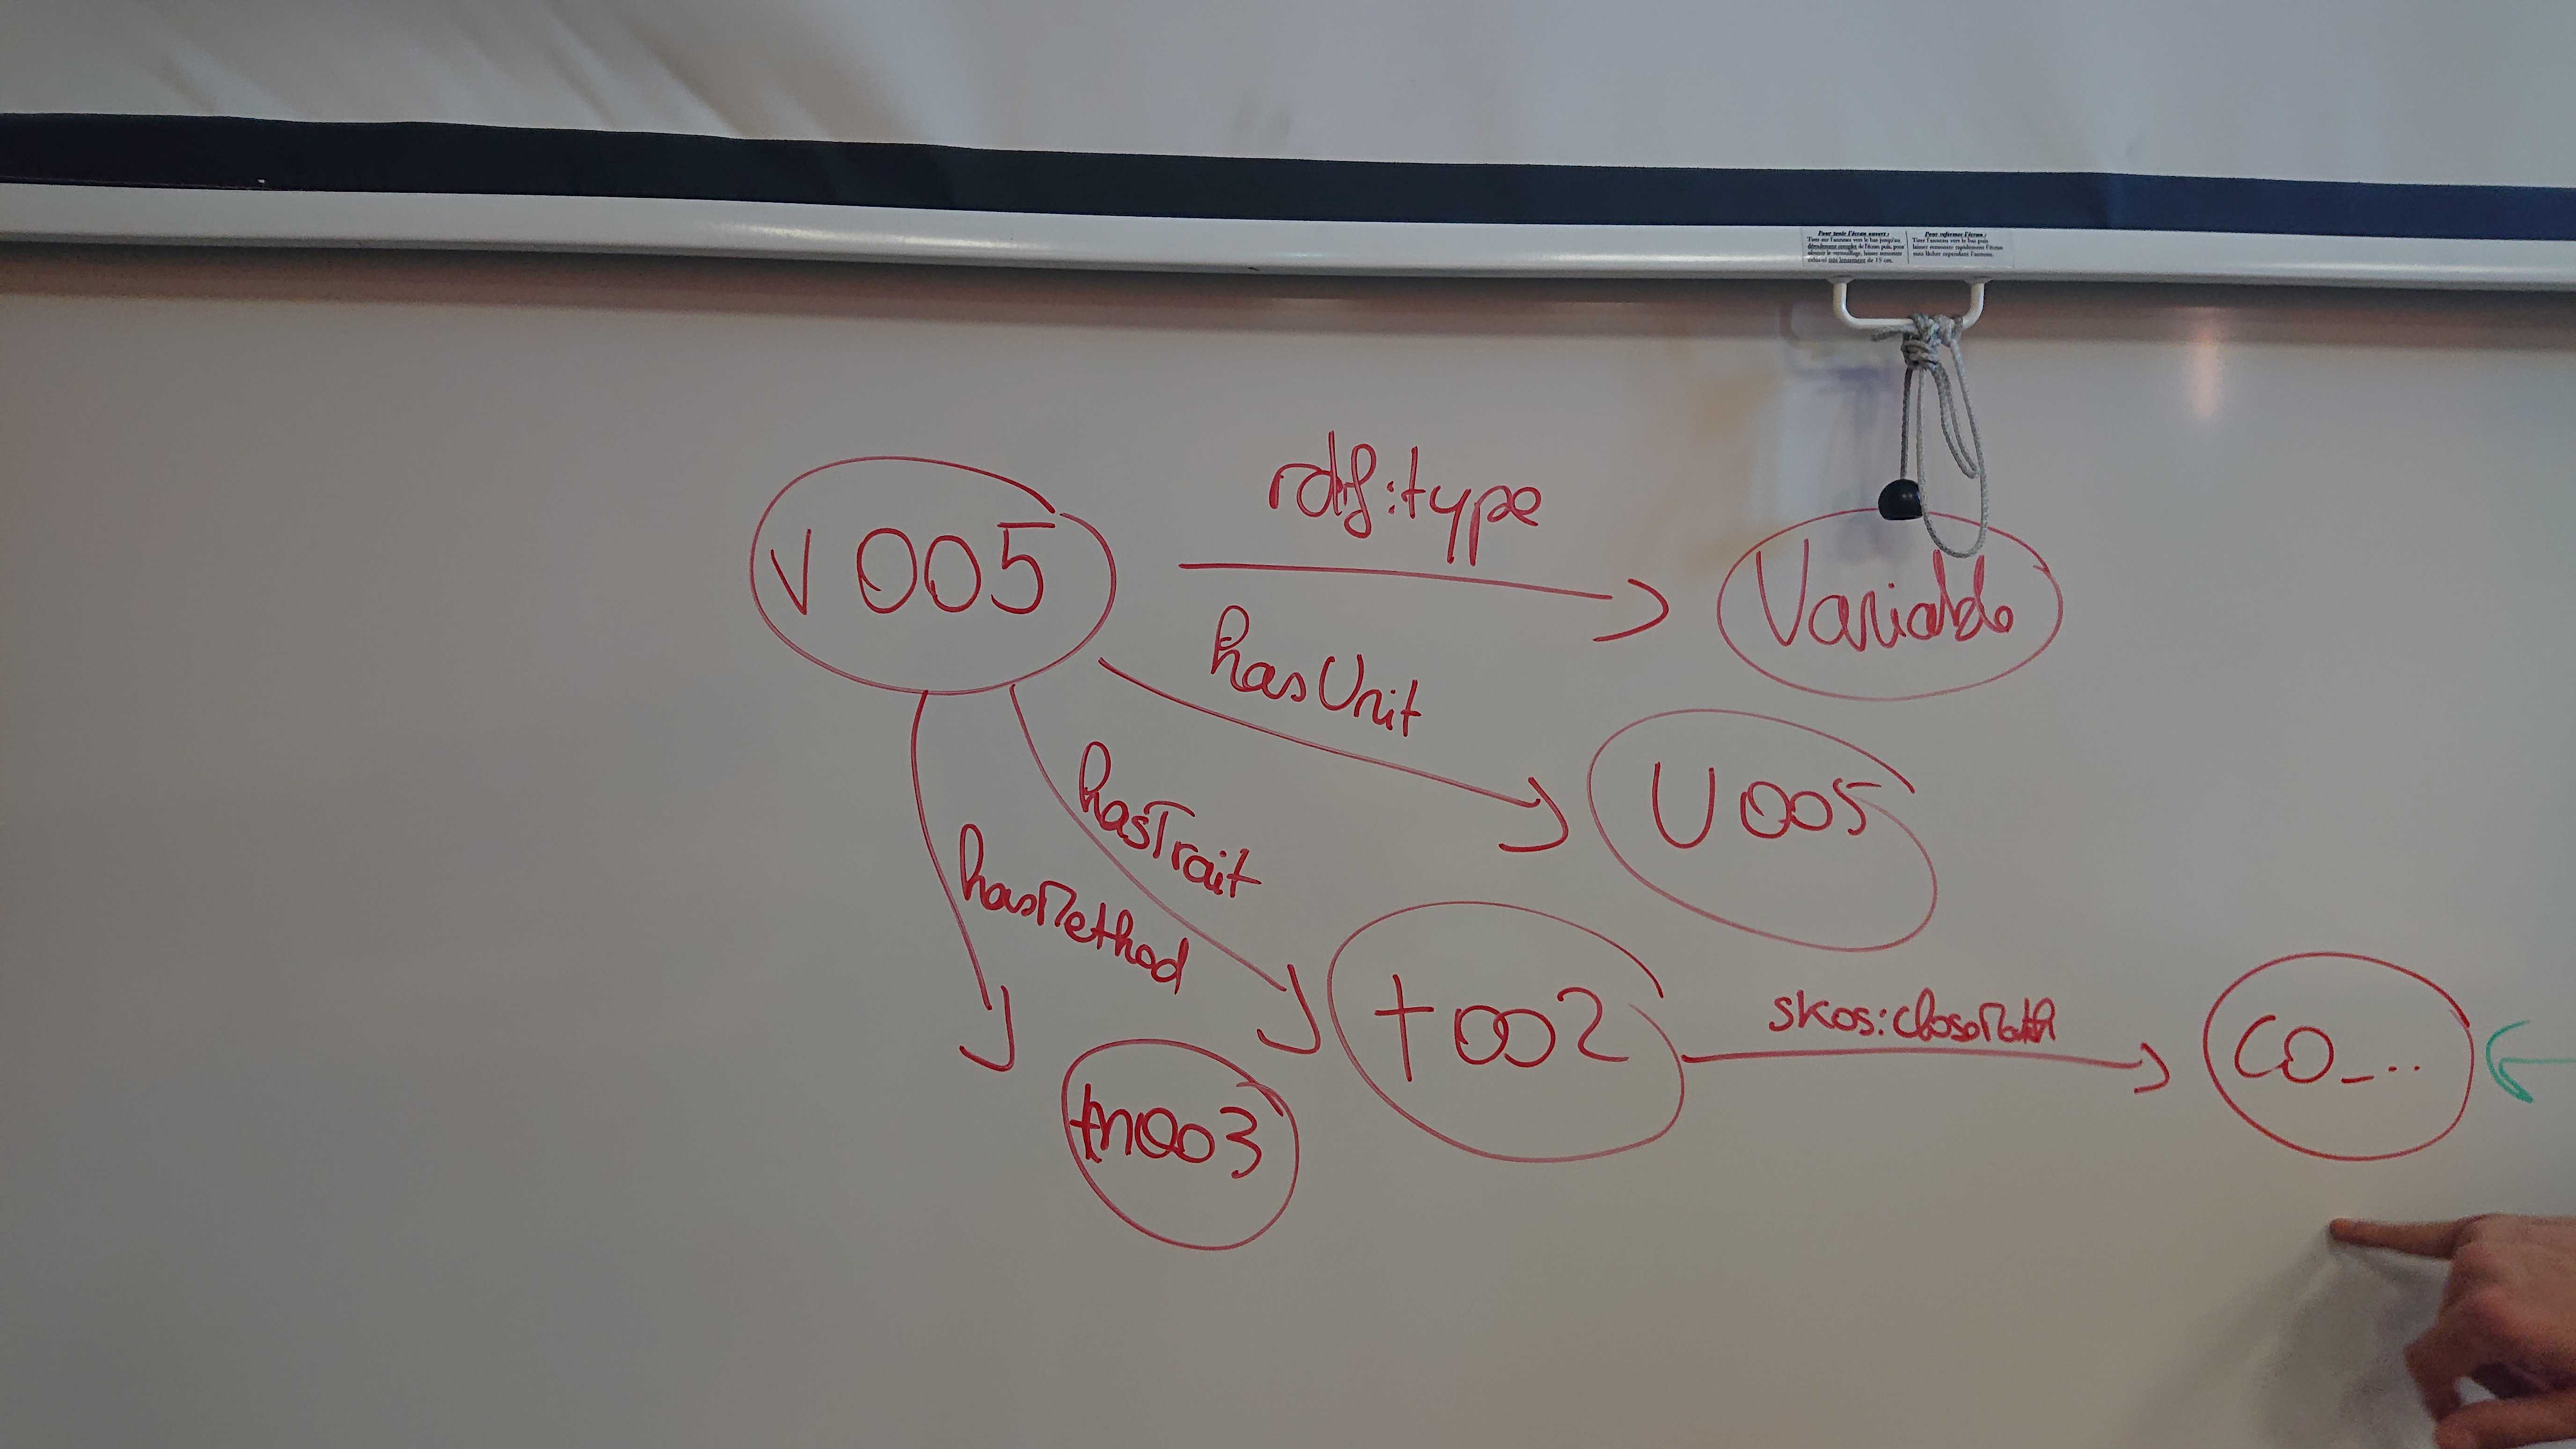 Pour tenir l'écran ouvert :
Tirer sur l'anneau vers le bas jusqu'au
déroulement complet de l'écran puis, pour
obtenir le verrouillage, laisser remonter
celui-ci très lentement de 15 cm.
Pour refermer l'écran :
Tirer l'anneau vers le bas puis
laisser remonter rapidement l'écran
sans lâcher cependant l'anneau.
rdf:type
v005
Variable
hasUnit
U005
hasTrait
hasMethod
t002
skos:closeMatch
CO_...
m003